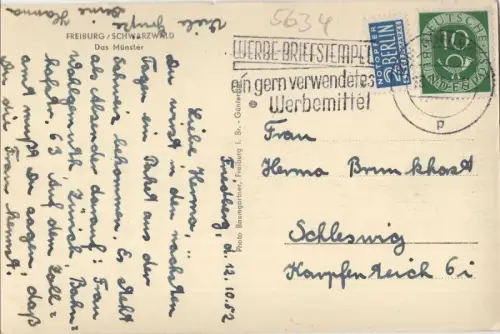 FREIBURG/SCHWARZWALD
Das Münster
Friedberg, d. 12.10.52
Liebe Herma,
du wirst in den nächsten
Tagen ein Paket aus der
Schweiz bekommen. Es steht
als Absender darauf: Frau
Wohlgemuth, Zürich, Bahn-
hofstr. 63. Auf dem Zoll=
amt mußt Du sagen, daß
Du die Frau kennst.
Viele Grüße
Deine Hanna
Photo Baumgartner, Freiburg i. Br. - Günterstal
5634
WERBE-BRIEFSTEMPEL
ein gern verwendetes
Werbemittel
NOTOPFER
2 BERLIN
STEUERMARKE
DEUTSCHE
10
BUNDESPOST
p
Frau
Herma Brunkhorst
Schleswig
Karpfenteich 6i